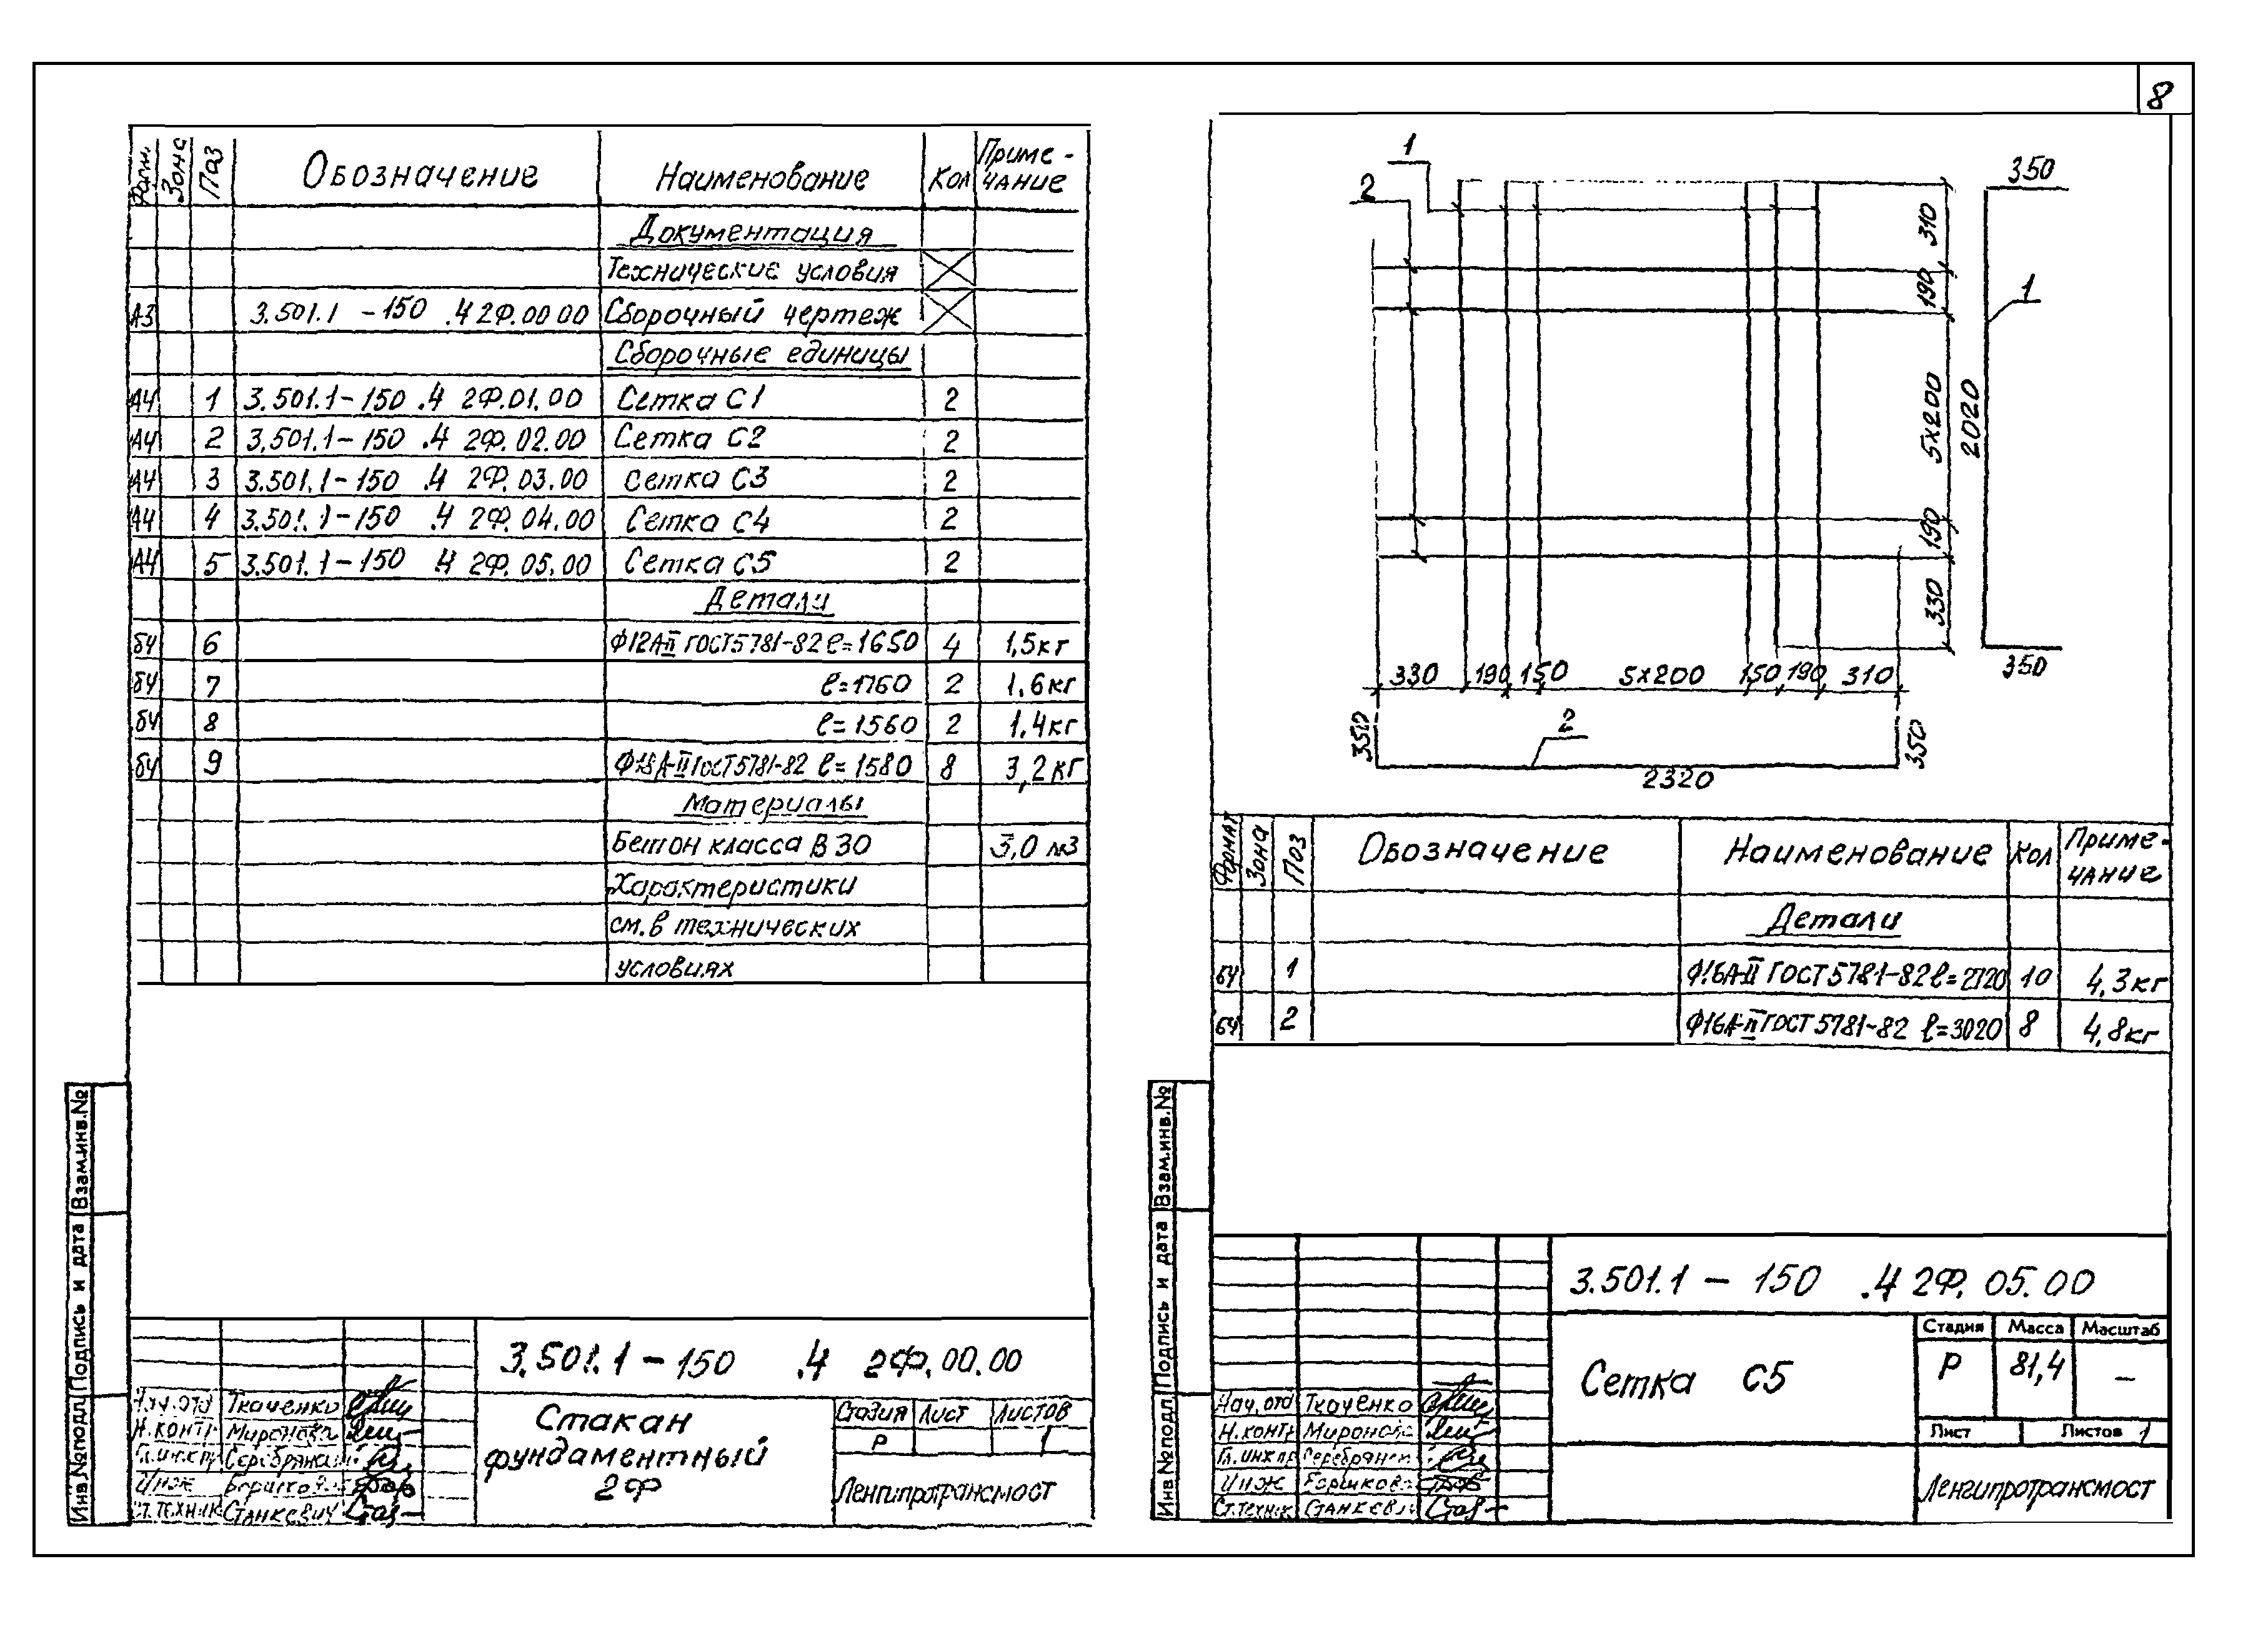 8
Зона Поз Обозначение Наименование Кол Приме-
чание
Документация
Технические условия
А3 3.501.1 -150 .4 2Ф.00 00 Сборочный чертеж
Сборочные единицы
А4 1 3.501.1-150 .4 2Ф.01.00 Сетка С1 2
А4 2 3.501.1-150 .4 2Ф.02.00 Сетка С2 2
А4 3 3.501.1-150 .4 2Ф.03.00 Сетка С3 2
А4 4 3.501.1-150 .4 2Ф.04.00 Сетка С4 2
А4 5 3.501.1-150 .4 2Ф.05.00 Сетка С5 2
Детали
бч 6 Ф12А-II ГОСТ5781-82 ℓ=1650 4 1,5кг
бч 7 ℓ=1760 2 1,6кг
бч 8 ℓ=1560 2 1,4кг
бч 9 Ф18А-II ГОСТ5781-82 ℓ=1580 8 3,2кг
Материалы
Бетон класса В30 3,0 м3
Характеристики
см. в технических
условиях
Инв.№подл. Подпись и дата Взам.инв.№
3.501.1-150 .4 2Ф.00.00
Нач.отд Ткаченко
Н.контр Миронова
Гл.инж.пр
Инж
Ст.техник Станкевич
Стакан
фундаментный
2Ф
Стадия Лист Листов
Р 1
Ленгипротрансмост
1
2
310
190
5х200
190
330
350
1
2020
350
330 190 150 5х200 150 190 310
350
2
2320
350
Формат Зона Поз Обозначение Наименование Кол Приме-
чание
Детали
бч 1 Ф16А-II ГОСТ5781-82 ℓ=2720 10 4,3кг
бч 2 Ф16А-II ГОСТ5781-82 ℓ=3020 8 4,8кг
Инв №подл. Подпись и дата Взам.инв.№
3.501.1 - 150 .4 2Ф.05.00
Нач.отд Ткаченко
Н.контр Миронова
Гл.инж.пр
Инж
Ст.техник Станкевич
Сетка С5
Стадия Масса Масштаб
Р 81,4 –
Лист Листов 1
Ленгипротрансмост